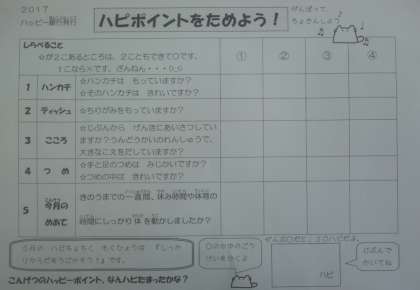 2017
ハッピー銀行発行
ハピポイントをためよう!
がんばって
ちょきんしよう
しらべること
☆が2こあるところは、2こともできて○です。
1こなら×です。ざんねん・・・
① ② ③ ④
1 ハンカチ
☆ハンカチは もっていますか?
☆そのハンカチは きれいですか?
2 ティッシュ
☆ちりがみをもっていますか?
3 こころ
☆じぶんから げんきにあいさつしてい
ますか?うんどうかいのれんしゅうで、
大きなこえをだしていますか?
4 つめ
☆手と足のつめは みじかいですか?
☆つめの中は きれいですか?
5 今月の
めあて
きのうまでの一週間、休み時間や体育の
時間にしっかり体を動かしましたか?
ぜんぶ○だと、10ハピだよ。
もくひょうは 『しっか
りからだをうごかそう!』です。
○のかずのごう
けいをかくよ
ハピ
じぶんで
かいてね
こんげつのハッピーポイント、なんハピたまったかな?